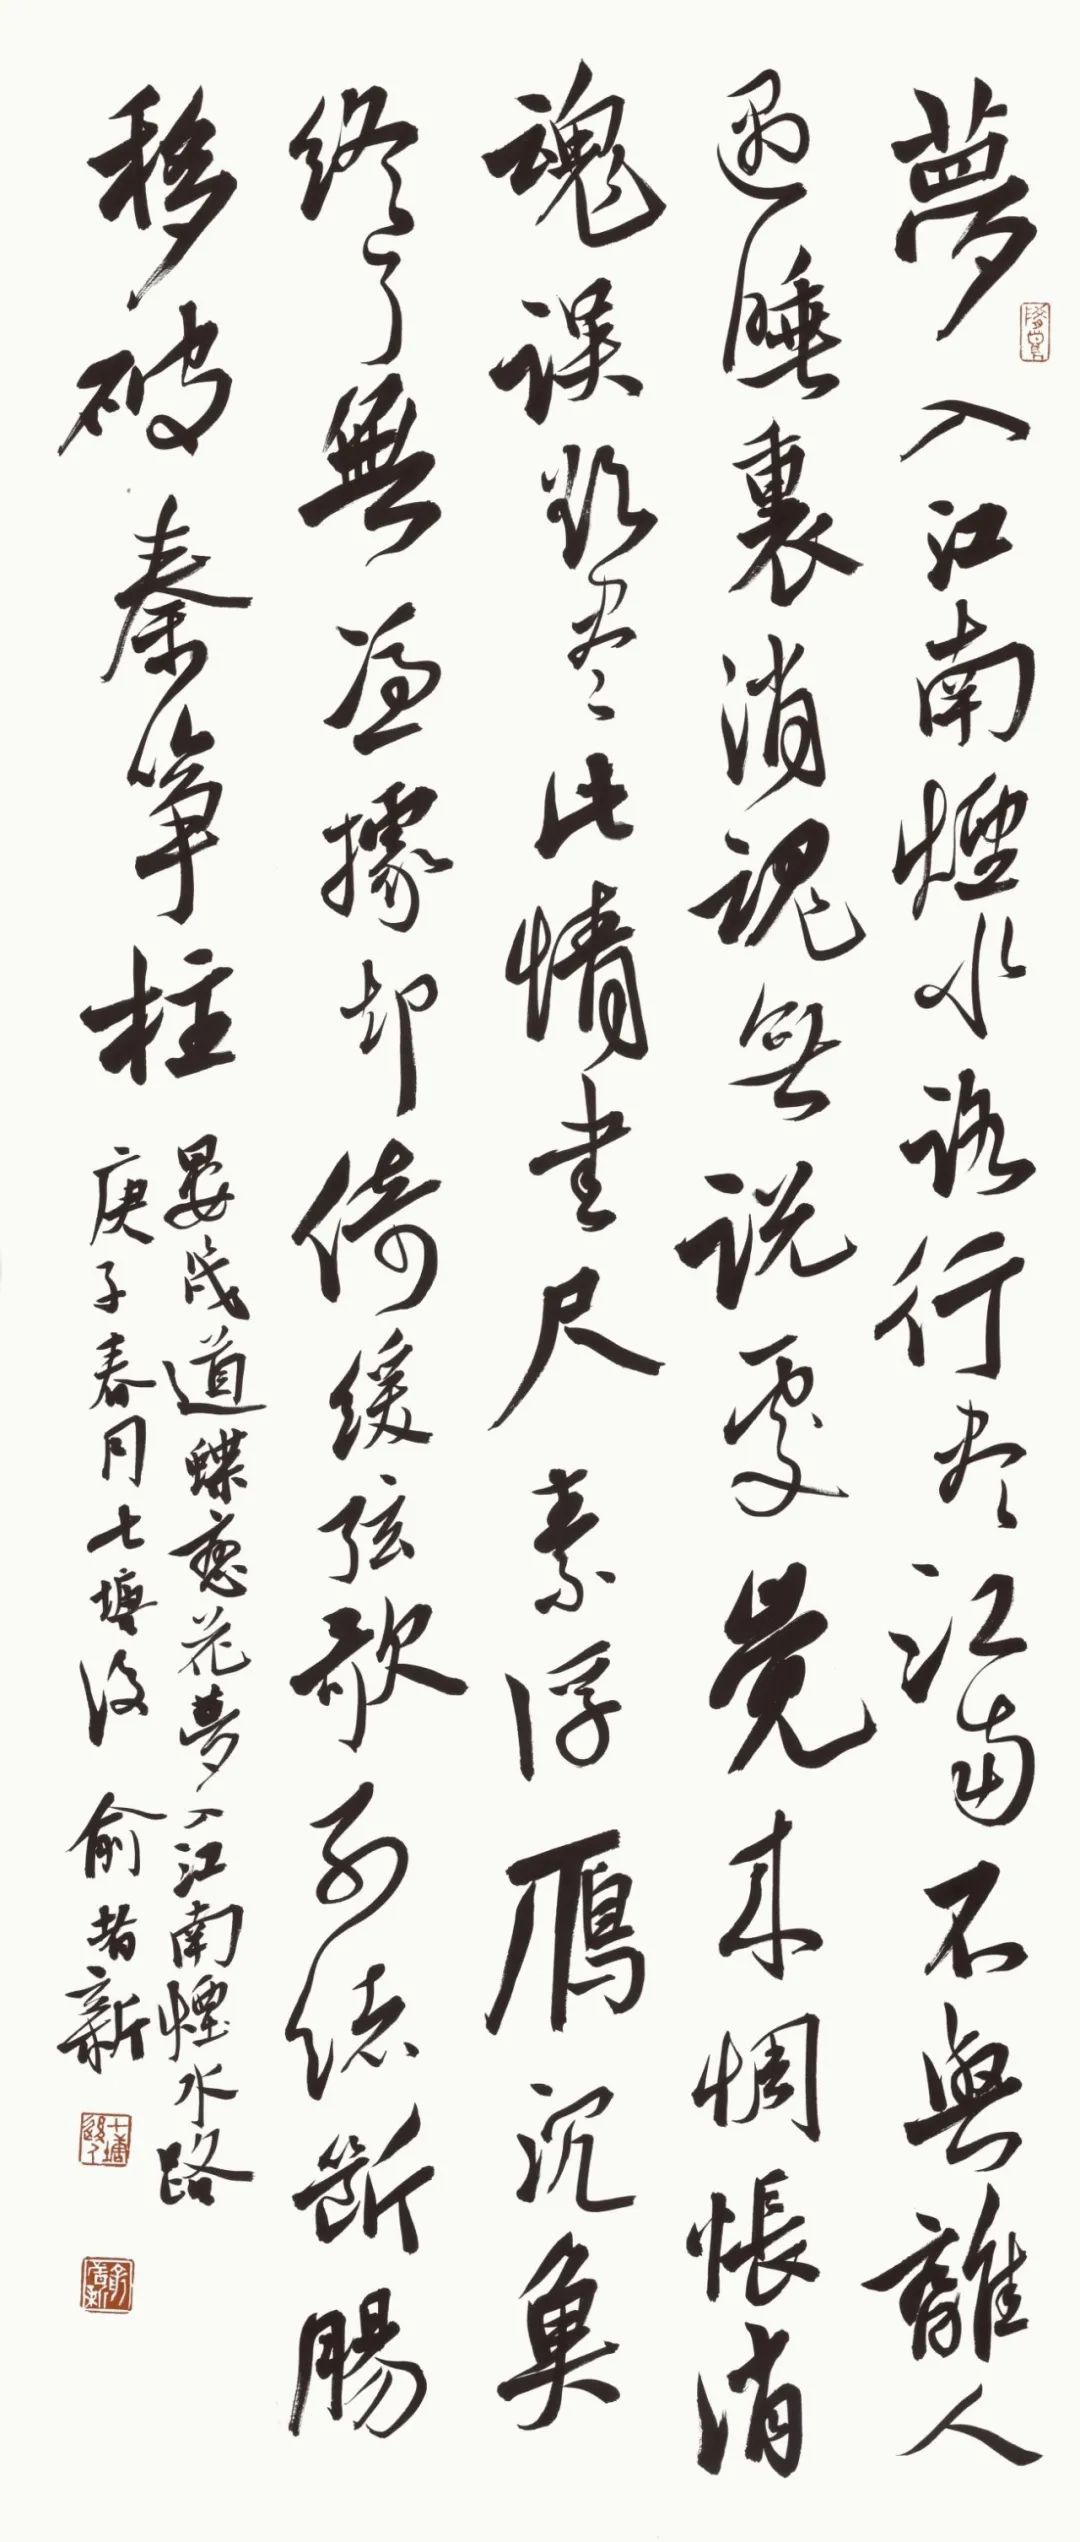 夢入江南煙水路行尽江南不與離人
遇睡裏消魂無説處覺来惆悵消
魂误欲尽此情書尺素浮雁沉魚
終了無憑據却倚緩弦歌別緒斷腸
移破秦箏柱
晏幾道蝶戀花夢入江南煙水路
庚子春月七塘後俞者新